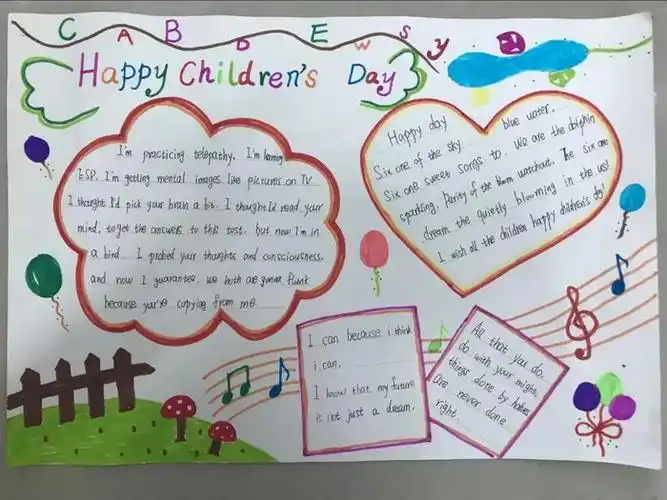 C A B D E W S y
Happy Children's Day
I'm practicing telepathy. I'm learning
ESP. I'm getting mental images like pictures on TV
I thought I'd pick your brain a bit. I thought I'd read your
mind, to get the answers to this test. but now I'm in
a bind. I probed your thoughts and consciousness.
and now I guarantee. we both are gonna flunk
because you're copying from me
Happy day blue water.
Six one of the sky
Six one sweet songs to. We are the dolphin
sparkling. Purity of the bloom watchout. The six one
dream the quietly blooming in the us!
I wish all the children happy children's day!
I can because i think
i can.
I know that my future
is not just a dream.
All that you do.
do with your might,
things done by halves
are never done
right.